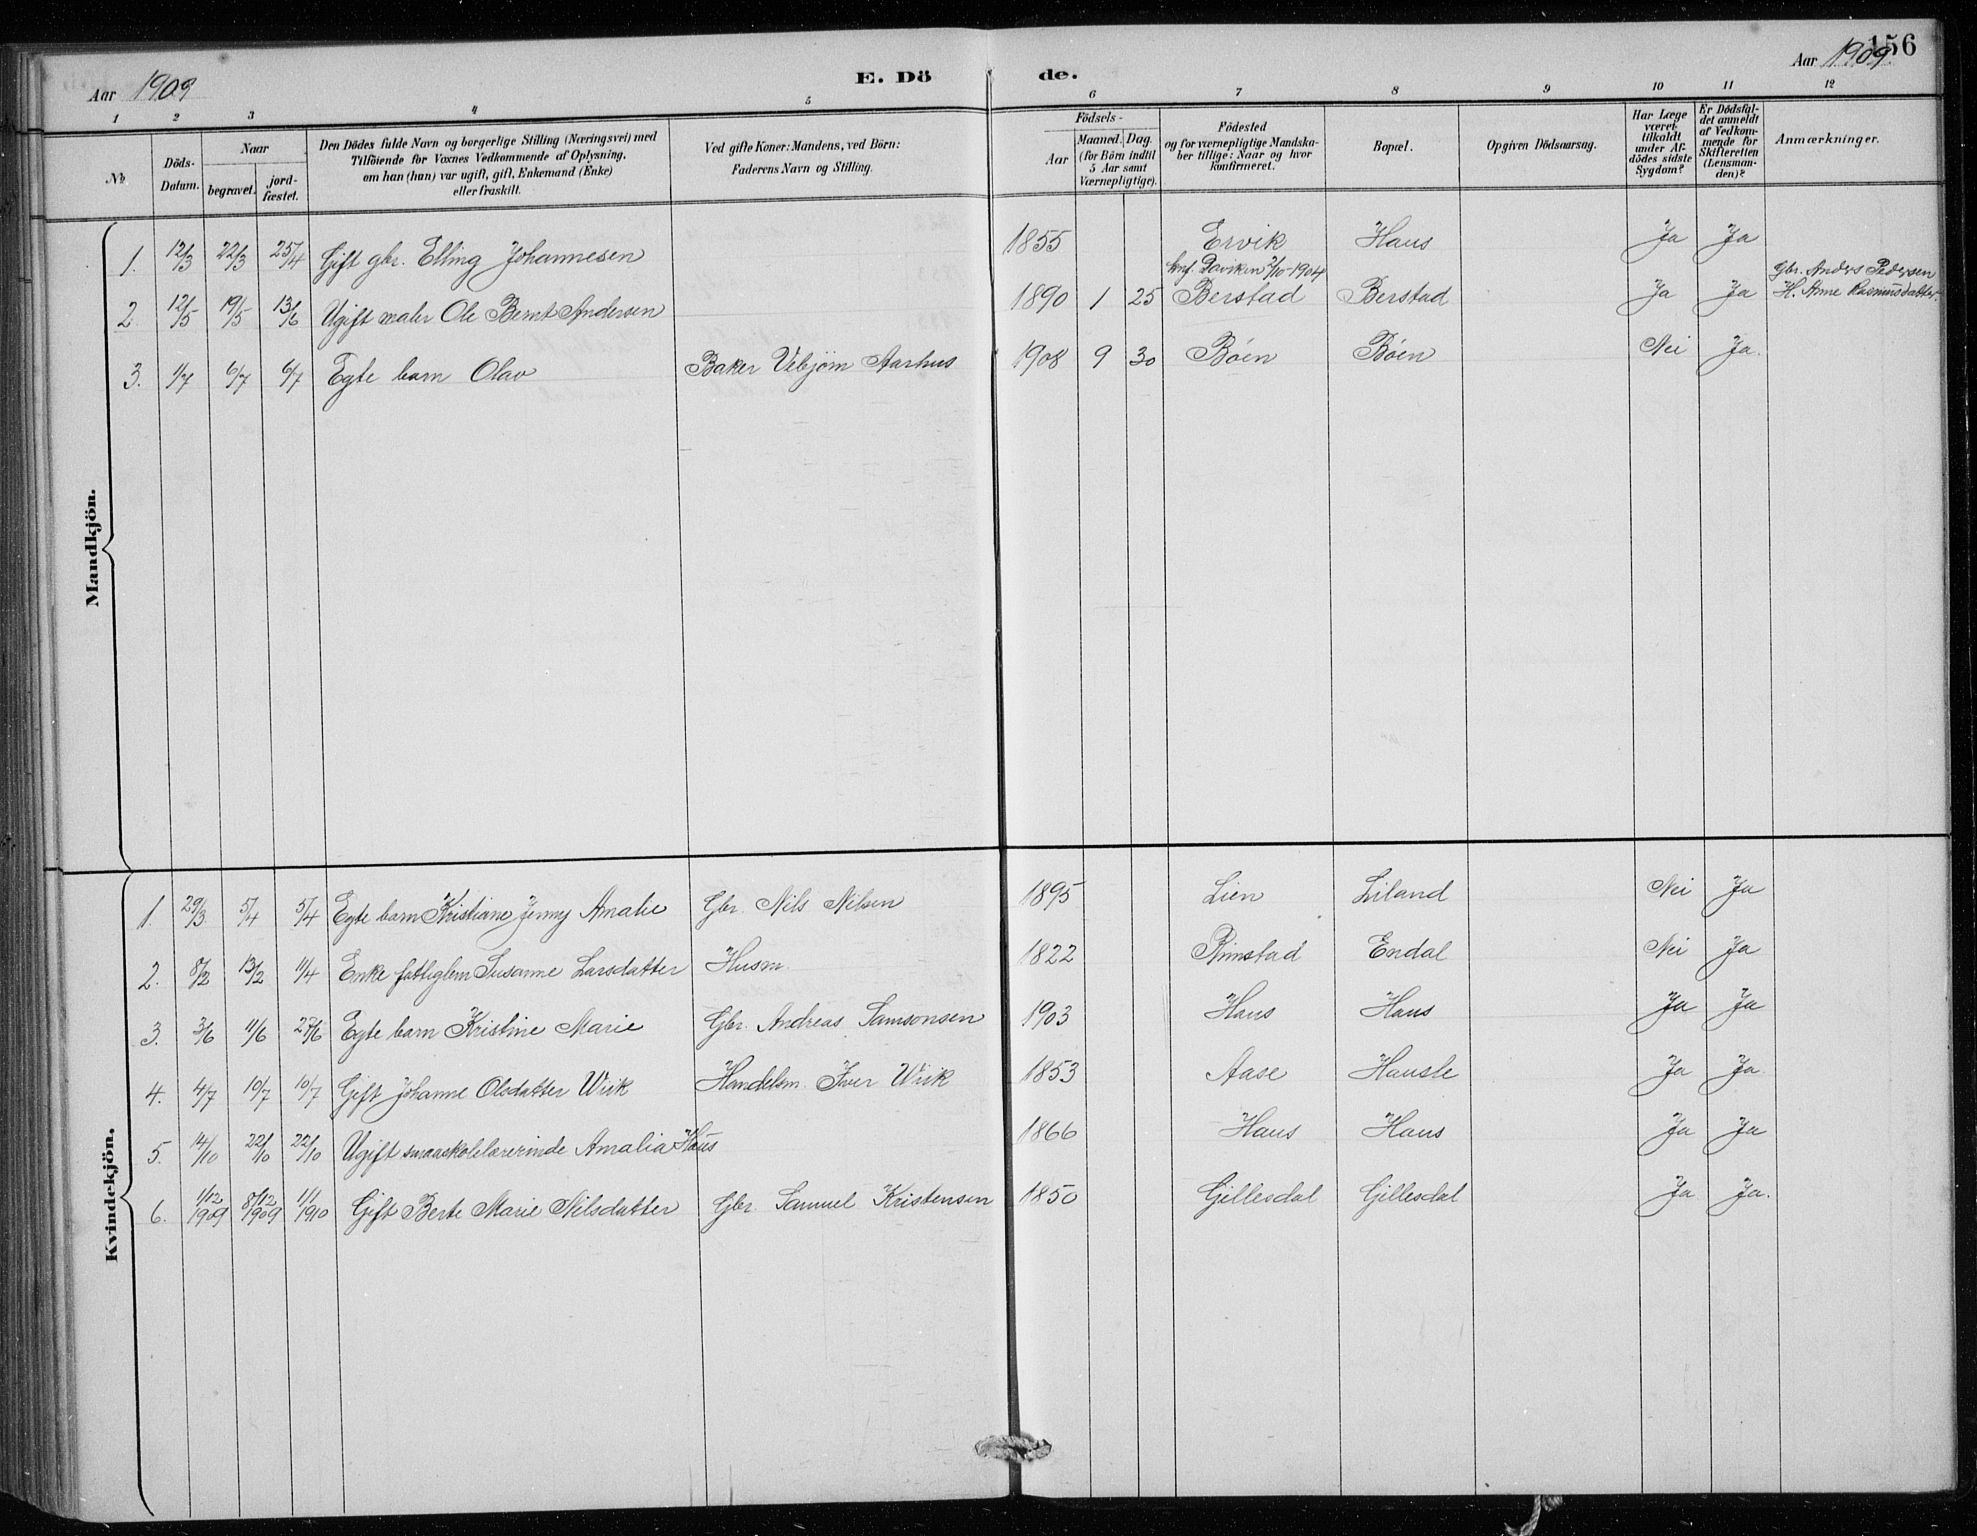 156
Aar 1909
E. Dö de.
Aar 1909
1 2 3 4 5 6 7 8 9 10 11 12
№
Döds-
Datum.
Naar
begravet.
jord-
fæstet.
Den Dödes fulde Navn og borgerlige Stilling (Næringsvei) med
Tilföiende for Voxnes Vedkommende af Oplysning,
om han (hun) var ugift, gift, Enkemand (Enke)
eller fraskilt.
Ved gifte Koner: Mandens, ved Börn:
Faderens Navn og Stilling.
Födsels-
Aar
Maaned. Dag.
(for Börn indtil
5 Aar samt
Værnepligtige).
Födested
og for værnepligtige Mandska-
ber tillige: Naar og hvor
konfirmeret.
Bopæl.
Opgiven Dödsaarsag.
Har Læge
været
tilkaldt
under Af-
dödes sidste
Sygdom?
Er Dödsfal-
det anmeldt
af Vedkom-
mende for
Skifteretten
(Lensman-
den)?
Anmærkninger.
Mandkjön.
1. 12/3 22/3 25/4 Gift gbr. Elling Johannesen 1855 Ervik Haus Ja Ja
knf. Daviken 2/10-1904 Gbr. Anders Pedersen
2. 12/5 19/5 13/6 Ugift maler Ole Bernt Andersen 1890 1 25 Berstad Berstad Ja Ja H. Anne Rasmusdatter.
3. 1/7 6/7 6/7 Egte barn Olav Baker Vebjörn Aarhus 1908 9 30 Böen Böen Nei Ja.
Kvindekjön.
1. 29/3 5/4 5/4 Egte barn Kristiane Jenny Amalie Gbr. Nils Nilsen 1895 Lien Liland Nei Ja
2. 8/2 13/2 11/4 Enke fattiglem Susanne Larsdatter Husm. 1822 Rimstad Endal Nei Ja
3. 3/6 11/6 27/6 Egte barn Kristine Marie Gbr. Andreas Samsonsen 1903 Haus Haus Ja Ja
4. 4/7 10/7 10/7 Gift Johanne Olsdatter Wiik Handelsm. Iver Wiik 1853 Aase Hausle Ja Ja.
5. 14/10 22/10 22/10 Ugift smaaskolelærerinde Amalia Haus 1866 Haus Haus Ja Ja
6. 1/12 1909 8/12 1909 1/1 1910 Gift Berte Marie Nilsdatter Gbr. Samuel Kristensen 1850 Gillesdal Gillesdal Ja Ja.